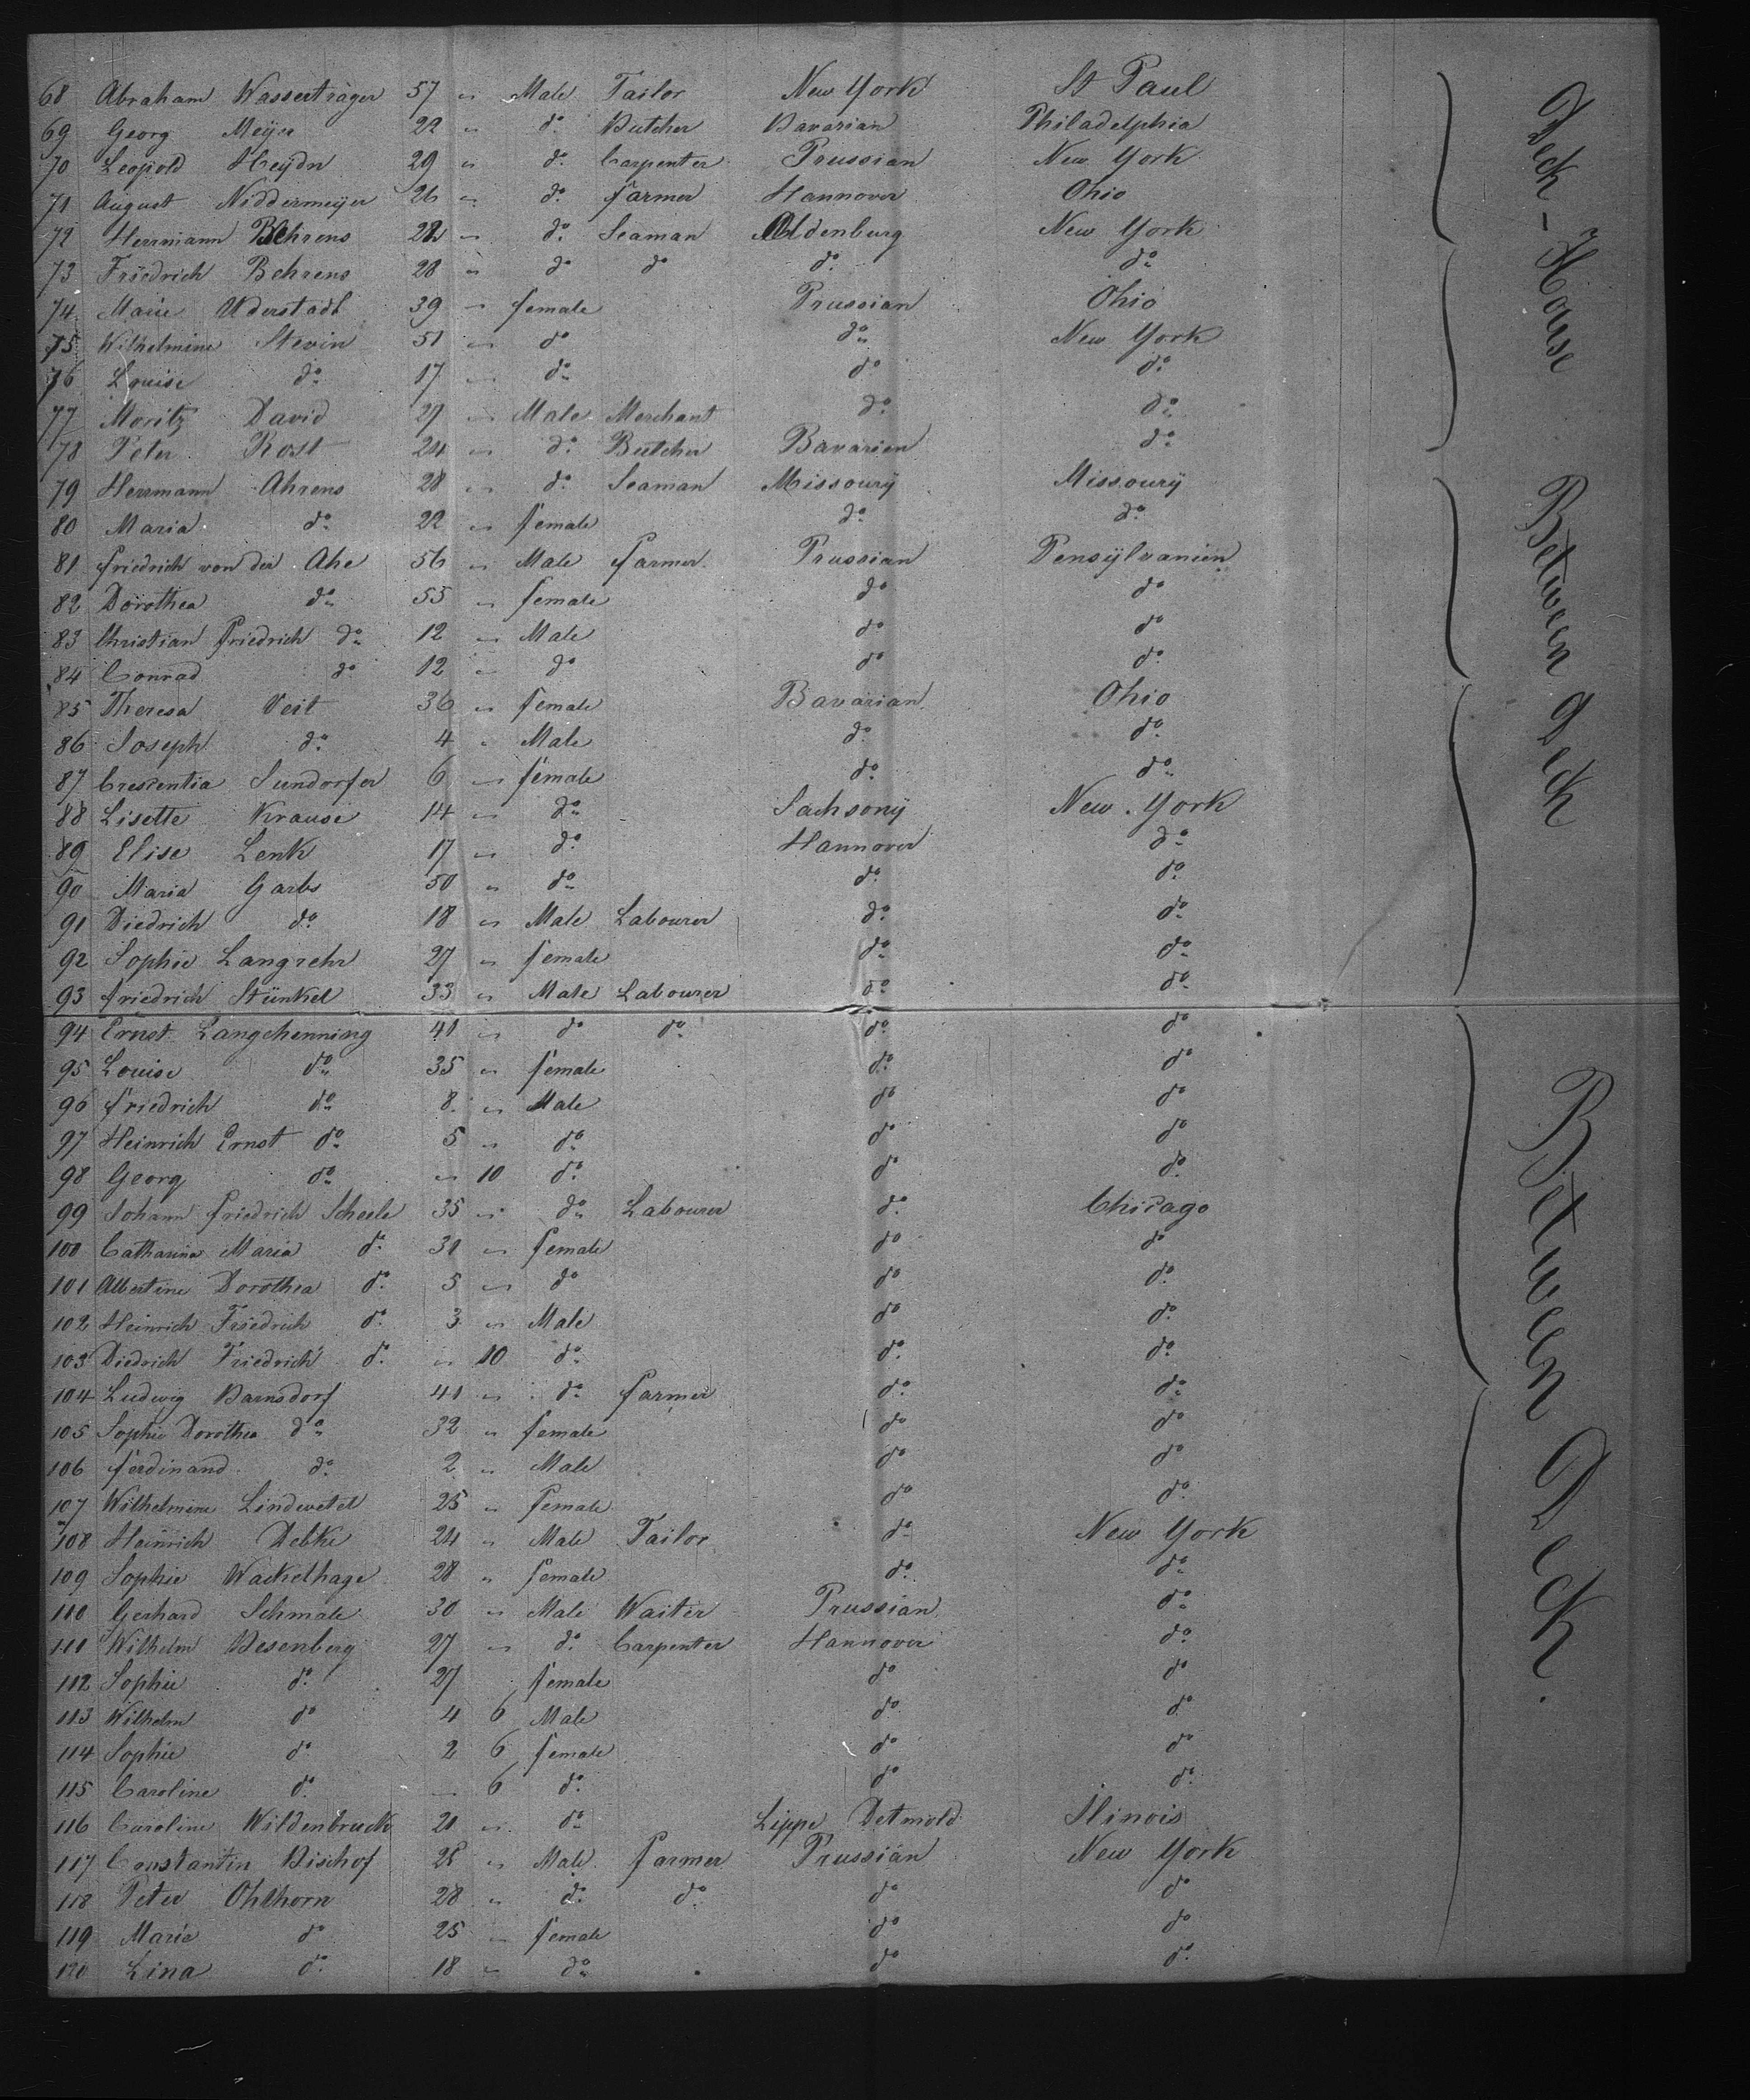 68 Abraham Wasserträger 57 " Male Tailor New York St Paul
69 Georg Meyer 22 " do. Butcher Bavarian Philadelphia
70 Leopold Heydn 29 " do. Carpenter Prussian New York
71 August Niddermeyer 26 " do. farmer Hannover Ohio
72 Herrmann Behrens 28 " do. Seaman Oldenburg New York
73 Friedrich Behrens 28 " do do do. do.
74 Marie Uderstadt 39 " female Prussian Ohio
75 Wilhelmine Stevin 51 " do do. New York
76 Louise do. 17 " do. do do.
77 Moritz David 27 " Male Merchant do. do.
78 Peter Rost 24 " do. Butcher Bavarien do.
79 Herrmann Ahrens 28 " do. Seaman Missoury Missoury
80 Maria do. 22 " female do. do.
81 friedrich von der Ahe 56 " Male farmer Prussian Pensylvanien
82 Dorothea do. 55 " female do. do
83 Christian friedrich do. 12 " Male do do
84 Conrad do 12 " do do do.
85 Theresa Veit 36 " female Bavarian Ohio
86 Joseph do. 4 " Male do. do.
87 Crescentia Sundorfer 6 " female do. do.
88 Lisette Krause 14 " do. Sachsony New York
89 Elise Lenk 17 " do. Hannover do.
90 Maria Garbs 50 " do. do. do.
91 Diedrich do. 18 " Male Labourer do. do.
92 Sophie Langrehr 27 " female do. do.
93 friedrich Stünkel 33 " Male Labourer do. do.
94 Ernst Langehenning 41 " do do. do. do
95 Louise do. 35 " female do. do
96 friedrich do. 8 " Male do do
97 Heinrich Ernst do. 5 " do. do do
98 Georg do. " 10 do. do do.
99 Johann friedrich Scheele 35 " do. Labourer do. Chicago
100 Catharina Maria do. 31 " female do do
101 Albertine Dorothea do. 5 " do do do.
102 Heinrich Friedrich do. 3 " Male do do.
103 Diedrich Friedrich do. " 10 do. do. do.
104 Ludwig Barnsdorf 41 " do. farmer do. do.
105 Sophie Dorothea do. 32 " female do do
106 ferdinand do. 2 " Male do do
107 Wilhelmine Lindwetel 25 " female do do.
108 Heinrich Debke 24 " Male Tailor do. New York
109 Sophie Wackelhage 28 " female do. do.
110 Gerhard Schmale 30 " Male Waiter Prussian do.
111 Wilhelm Besenberg 27 " do. Carpenter Hannover do.
112 Sophie do. 27 female do do
113 Wilhelm do 4 6 Male do do
114 Sophie do 2 6 female do do
115 Caroline do. " 6 do. do do.
116 Caroline Wildenbruck 21 " do. Lippe Detmold Ilinois
117 Constantin Bischof 28 " Male farmer Prussian New York
118 Peter Ohlhorn 28 " do. do. do do
119 Marie do 25 " female do do
120 Lina do. 18 " do. do do.
Deck-House
Between Deck
Between Deck.